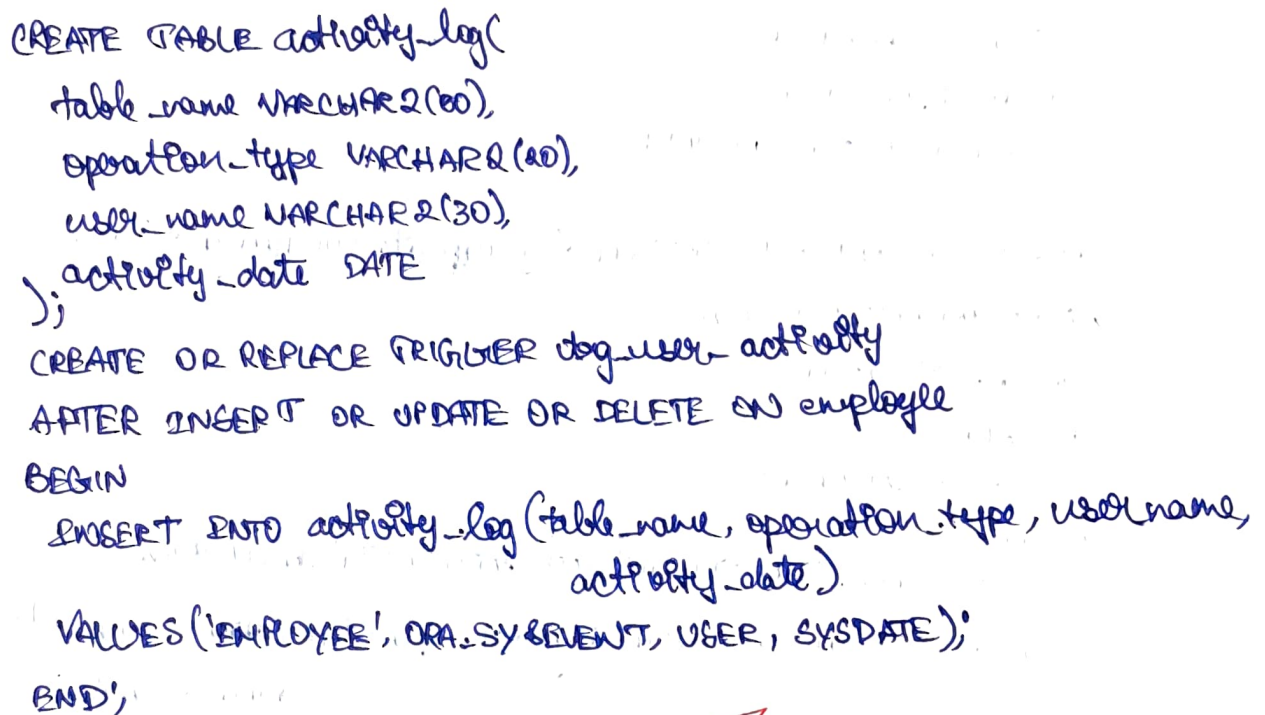 CREATE TABLE activity_log(
table_name VARCHAR2(30),
operation_type VARCHAR2(20),
user_name VARCHAR2(30),
activity_date DATE
);
CREATE OR REPLACE TRIGGER trg_user_activity
AFTER INSERT OR UPDATE OR DELETE ON employee
BEGIN
INSERT INTO activity_log(table_name, operation_type, user name,
activity_date)
VALUES('EMPLOYEE', ORA_SYSEVENT, USER, SYSDATE);
END;